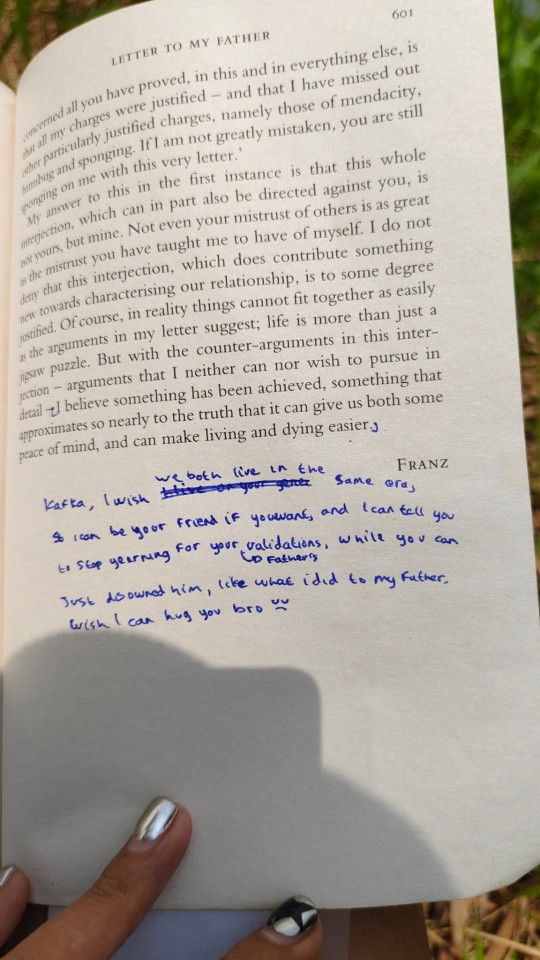 601
LETTER TO MY FATHER
concerned all you have proved, in this and in everything else, is
that all my charges were justified – and that I have missed out
other particularly justified charges, namely those of mendacity,
humbug and sponging. If I am not greatly mistaken, you are still
sponging on me with this very letter.'
My answer to this in the first instance is that this whole
interjection, which can in part also be directed against you, is
not yours, but mine. Not even your mistrust of others is as great
as the mistrust you have taught me to have of myself. I do not
deny that this interjection, which does contribute something
new towards characterising our relationship, is to some degree
justified. Of course, in reality things cannot fit together as easily
as the arguments in my letter suggest; life is more than just a
jigsaw puzzle. But with the counter-arguments in this inter-
jection – arguments that I neither can nor wish to pursue in
detail – I believe something has been achieved, something that
approximates so nearly to the truth that it can give us both some
peace of mind, and can make living and dying easier.
FRANZ
we both live in the
Kafka, I wish same era,
so i can be your friend if you want, and I can tell you
to stop yearning for your validations, while you can
Father's
Just disowned him, like what i did to my Father.
Wish I can hug you bro